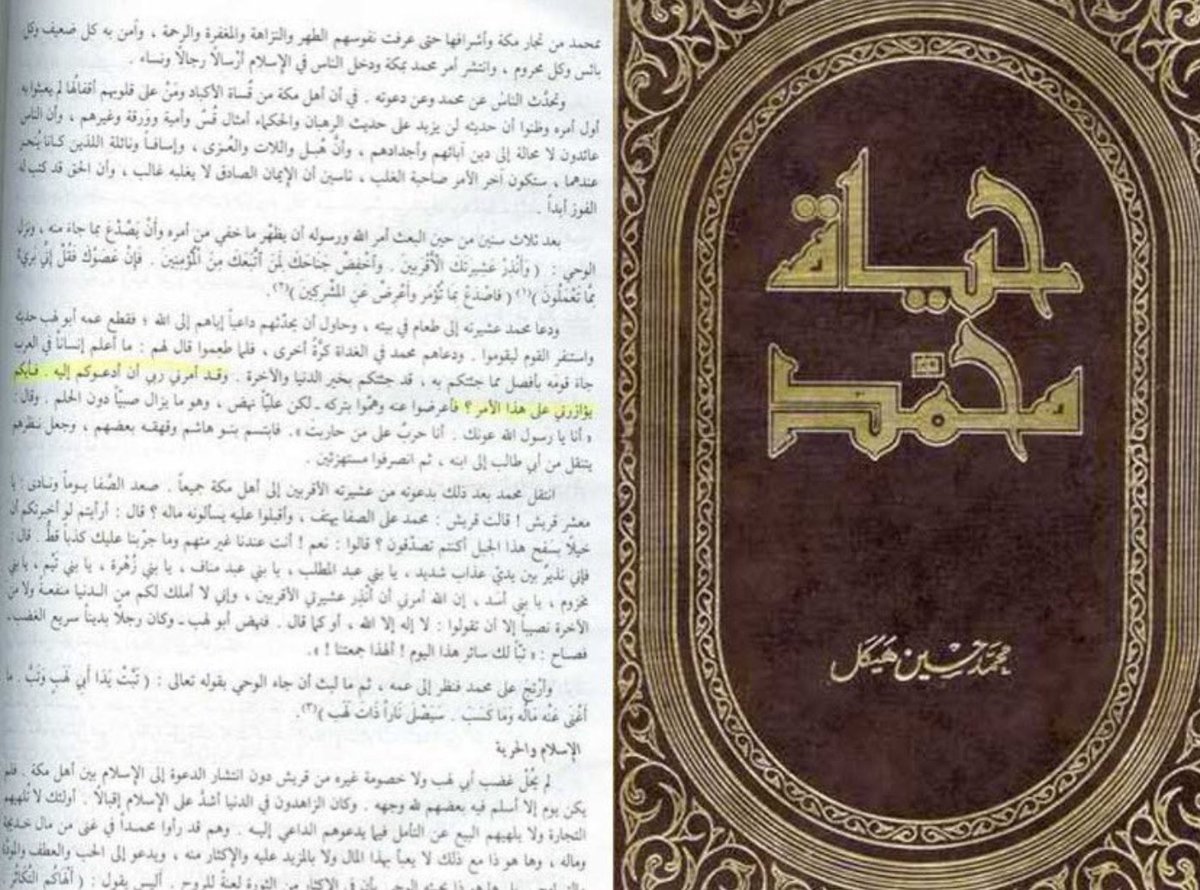 بمحمد من تجار مكة وأشرافها حتى عرفت نفوسهم الطهر والنزاهة والمغفرة والرحمة ، وآمن به كل ضعيف وكل
بائس وكل محروم ، وانتشر أمر محمد بمكة ودخل الناس في الإسلام أرسالًا رجالًا ونساء .
وتحدَّث الناسُ عن محمد وعن دعوته . في أن أهل مكة من قُساة الأكباد ومَنْ على قلوبهم أقفالُها لم يعبئوا به
أول أمره وظنوا أن حديثه لن يزيد على حديث الرهبان والحكماء أمثال قُسّ وأمية وورقة وغيرهم ، وأن الناس
عائدون لا محالة إلى دين آبائهم وأجدادهم ، وأنَّ هُبل واللات والعُزى ، وإسافاً ونائلة اللذين كانا يُنحر
عندهما ، ستكون آخر الأمر صاحبة الغلب ، ناسين أن الإيمان الصادق لا يغلبه غالب ، وأن الحق قد كتب له
الفوز أبداً .
بعد ثلاث سنين من حين البعث أمر الله ورسوله أن يظهر ما خفي من أمره وأنْ يَصْدَعَ بما جاءَ منه ، ونزل
الوحي : ( وَأَنْذِرْ عشيرتك الْأَقْرَبين . وَاخْفِضْ جَنَاحَكَ لِمَنِ اتَّبَعَكَ مِنَ الْمُؤْمِنِينَ . فَإِنْ عَصَوْكَ فَقُلْ إنِّي بَرِيءٌ
مِمَّا تَعْمَلُونَ )(١) ( فَاصْدَعْ بِمَا تُؤْمَر وأَعْرِضْ عَنِ المُشْرِكِينَ )(٢).
ودعا محمد عشيرته إلى طعام في بيته ، وحاول أن يحدّثهم داعياً إياهم إلى الله ؛ فقطع عمه أبو لهب حديثه
واستنفر القوم ليقوموا . ودعاهم محمد في الغداة كَرَّةً أخرى ، فلما طعموا قال لهم : ما أعلم إنساناً في العرب
جاء قومَه بأفضل مما جئتكم به ، قد جئتكم بخير الدنيا والآخرة . وقد أمرني ربي أن أدعوكم إليه . فأيكم
يؤازرني على هذا الأمر ؟ فأعرضوا عنه وهمُّوا بتركه ـ لكن عليًّا نهض ، وهو ما يزال صبيًّا دون الحلم . وقال :
« أنا يا رسول الله عونك . أنا حربٌ على من حاربت » . فابتسم بنو هاشم وقهقه بعضهم ، وجعل نظرهم
ينتقل من أبي طالب إلى ابنه ، ثم انصرفوا مستهزئين .
انتقل محمد بعد ذلك بدعوته من عشيرته الأقربين إلى أهل مكة جميعاً . صعد الصَّفا يوماً ونادى : يا
معشر قريش ! قالت قريش : محمد على الصفا يهتف ، وأقبلوا عليه يسألونه ماله ؟ قال : أرأيتم لو أخبرتكم أن
خيلًا بسَفح هذا الجبل أكنتم تصدّقون ؟ قالوا : نعم ! أنت عندنا غير متهم وما جرّبنا عليك كذباً قطُّ . قال :
فإني نذيرٌ بين يديْ عذاب شديد ، يا بني عبد المطلب ، يا بني عبد مناف ، يا بني زُهْرة ، يا بني تَيْم ، يا بني
مخزوم ، يا بني أسد ، إن الله أمرني أن أنْذِر عشيرتي الأقربين ، وإني لا أملك لكم من الدنيا منفعةً ولا من
الآخرة نصيباً إلا أن تقولوا : لا إله إلا الله ، أو كما قال . فنهض أبو لهب ـ وكان رجلًا بديناً سريع الغضب ـ
فصاح : « تبًّا لك سائر هذا اليوم ! ألهذا جمعتنا ! » .
وأُرْتِجَ على محمد فنظر إلى عمه ، ثم ما لبث أن جاء الوحي بقوله تعالى : ( تَبَّتْ يَدَا أَبِي لهب وَتَبَّ . ما
أغْنَى عَنْه مَالُه وَمَا كَسَبَ . سَيَصْلَى نَاراً ذَاتَ لَهَب )(٣).
الإسلام والحرية
لم يَحُلْ غضب أبي لهب ولا خصومة غيره من قريش دون انتشار الدعوة إلى الإسلام بين أهل مكة . فلم
يكن يوم إلا أسلم فيه بعضهم لله وجهه . وكان الزاهدون في الدنيا أشدَّ على الإسلام إقبالًا . أولئك لا تلهيهم
التجارة ولا يلهيهم البيع عن التأمل فيما يدعوهم الداعي إليه . وهم قد رأوا محمداً في غنى من مال خديجة
وماله ، وها هو ذا مع ذلك لا يعبأ بهذا المال ولا بالمزيد عليه والإكثار منه ، ويدعو إلى الحب والعطف والمودّة
هو ذا يجيئه الوحي بأن في الإكثار من الثروة لعنةً للروح . أليس يقول : ( أَلْهَاكُم التَّكَاثُر .
حياة
محمد
محمد حسين هيكل